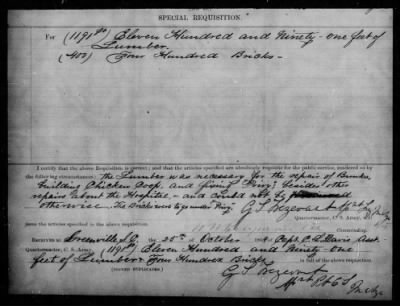 SPECIAL REQUISITION.
For (1191 ft) Eleven Hundred and Ninety-one feet of
Lumber.
(400) Four Hundred Bricks -
I certify that the above Requisition is correct; and that the articles specified are absolutely requisite for the public service, rendered so by
the following circumstances: The Lumber was necessary for the repair of Bunks,
building Chicken Coop, and fixing Privy besides other
repairs about the Hospital - and could not be
otherwise. The Bricks were to
Quartermaster, C. S. Army,
issue the articles specified in the above requisition.
Commanding.
RECEIVED at Greenville, S.C. the 25th of October 186 of Capt. Asst
Quartermaster, C. S. Army, (1191 ft) Eleven Hundred and Ninety-One
feet of Lumber Four Hundred Bricks
(SIGNED DUPLICATES.)